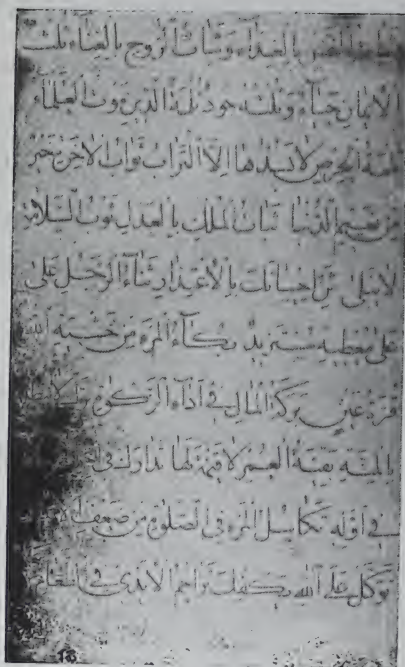 ثبات النفس بالغذاء وثبات الروح بالغناء ثلث
الايمان حياء وثلثه جود ثلمة الدين موت العلماء
ثلمة الحرص لا يسدها الا التراب ثواب الاخرة خير
من نعيم الدنيا ثبات الملك بالعدل ثوب السلامة
لا يبلى ثن احسانك بالاعتذار ثناء الرجل على
على معطيه مستزيد بكاء المرء من خشية الله
قرة عين بركة المال في اداء الزكوة
بقية العمر لا قيمة لها تدارك في
في اوله تكاسل المرء في الصلوة من ضعف
توكل على الله يكفيك تزاحم الايدي في الطعام